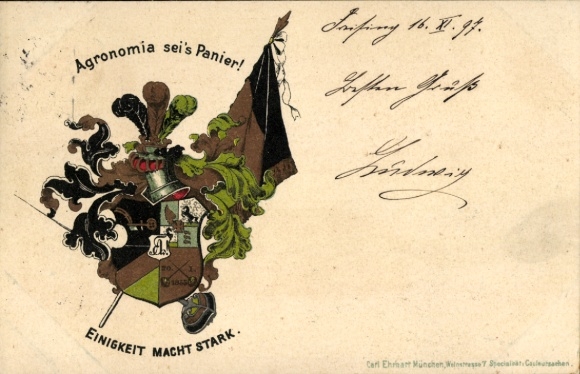 Agronomia sei's Panier!
Freising 16. XI. 97.
Besten Gruß
Ludwig
EINIGKEIT MACHT STARK.
Carl Ehrhart München, Specialist f. Couleursachen.